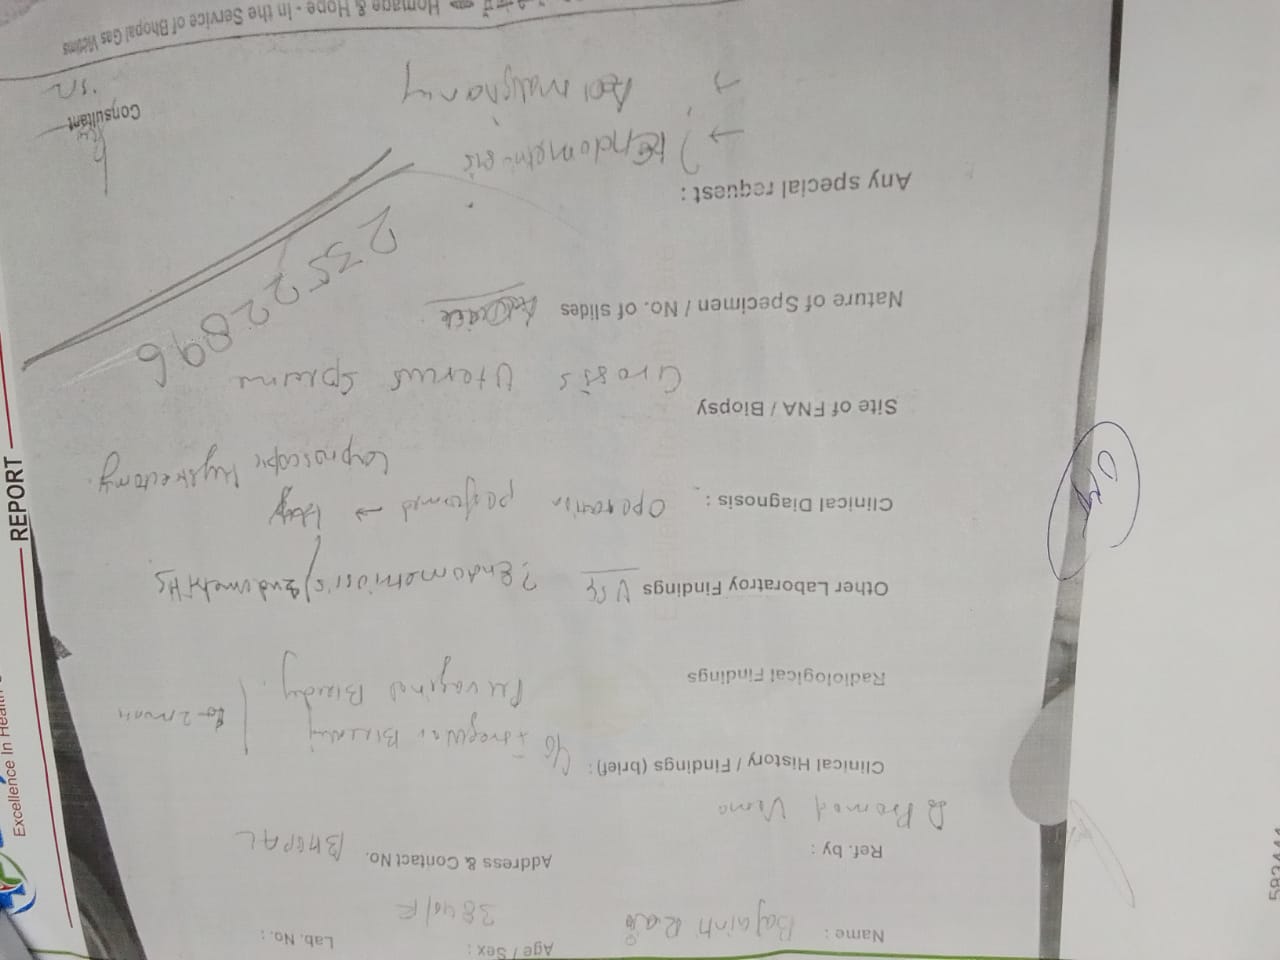 Name : Bajainti Rai
Age / Sex : 38 yo/F
Lab. No. :
Ref. by :
Dr Pramod Verma
Address & Contact No. BHOPAL
Clinical History / Findings (brief) : C/o Irregular Bleeding
Per vaginal Bleeding.
Radiological Findings
Other Laboratroy Findings USG ? Endometriosis / Endometritis
Clinical Diagnosis : Operation performed →
Laproscopic Hysterectomy.
Site of FNA / Biopsy
Gross's Uterus
Nature of Specimen / No. of slides
2352 2896
Any special request :
→ ? Endometriosis
→ malignancy
Consultant
Homage & Hope - In the Service of Bhopal Gas Victims
REPORT
Excellence In Health